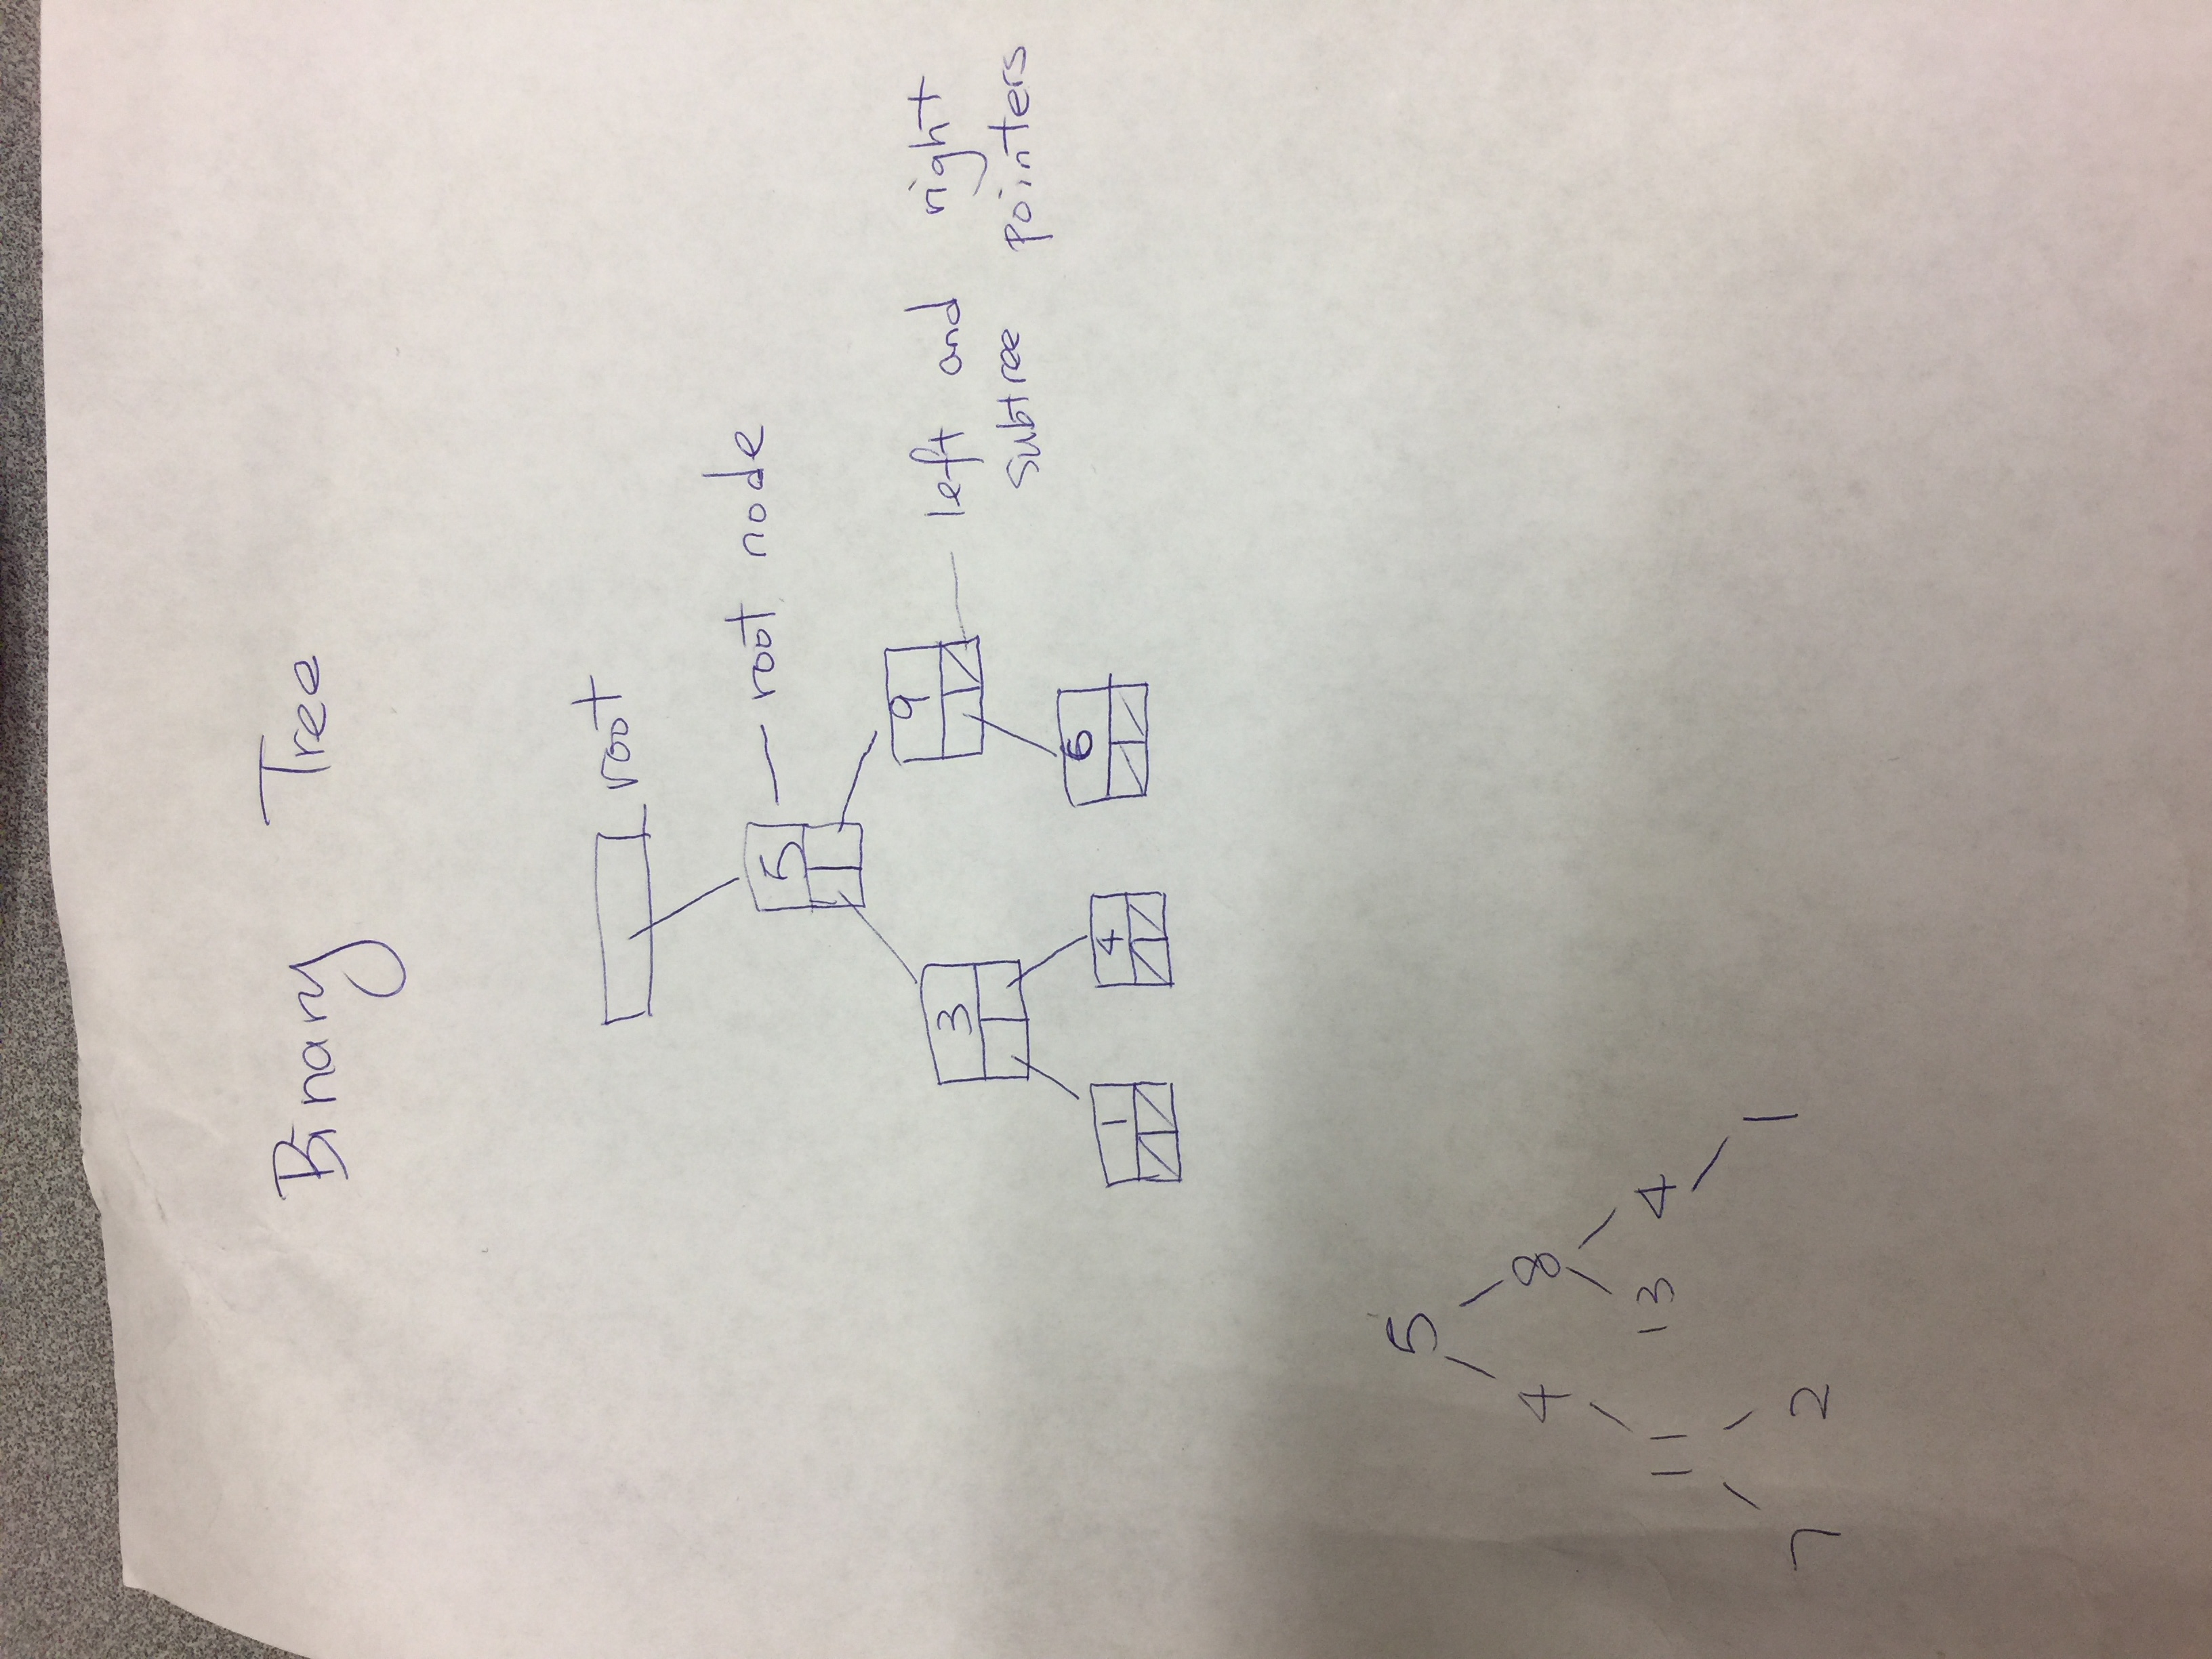 Binary Tree
root
5 root node
3 9 left and right
subtree pointers
1 4 6
5
4 8
11 13 4
7 2 1